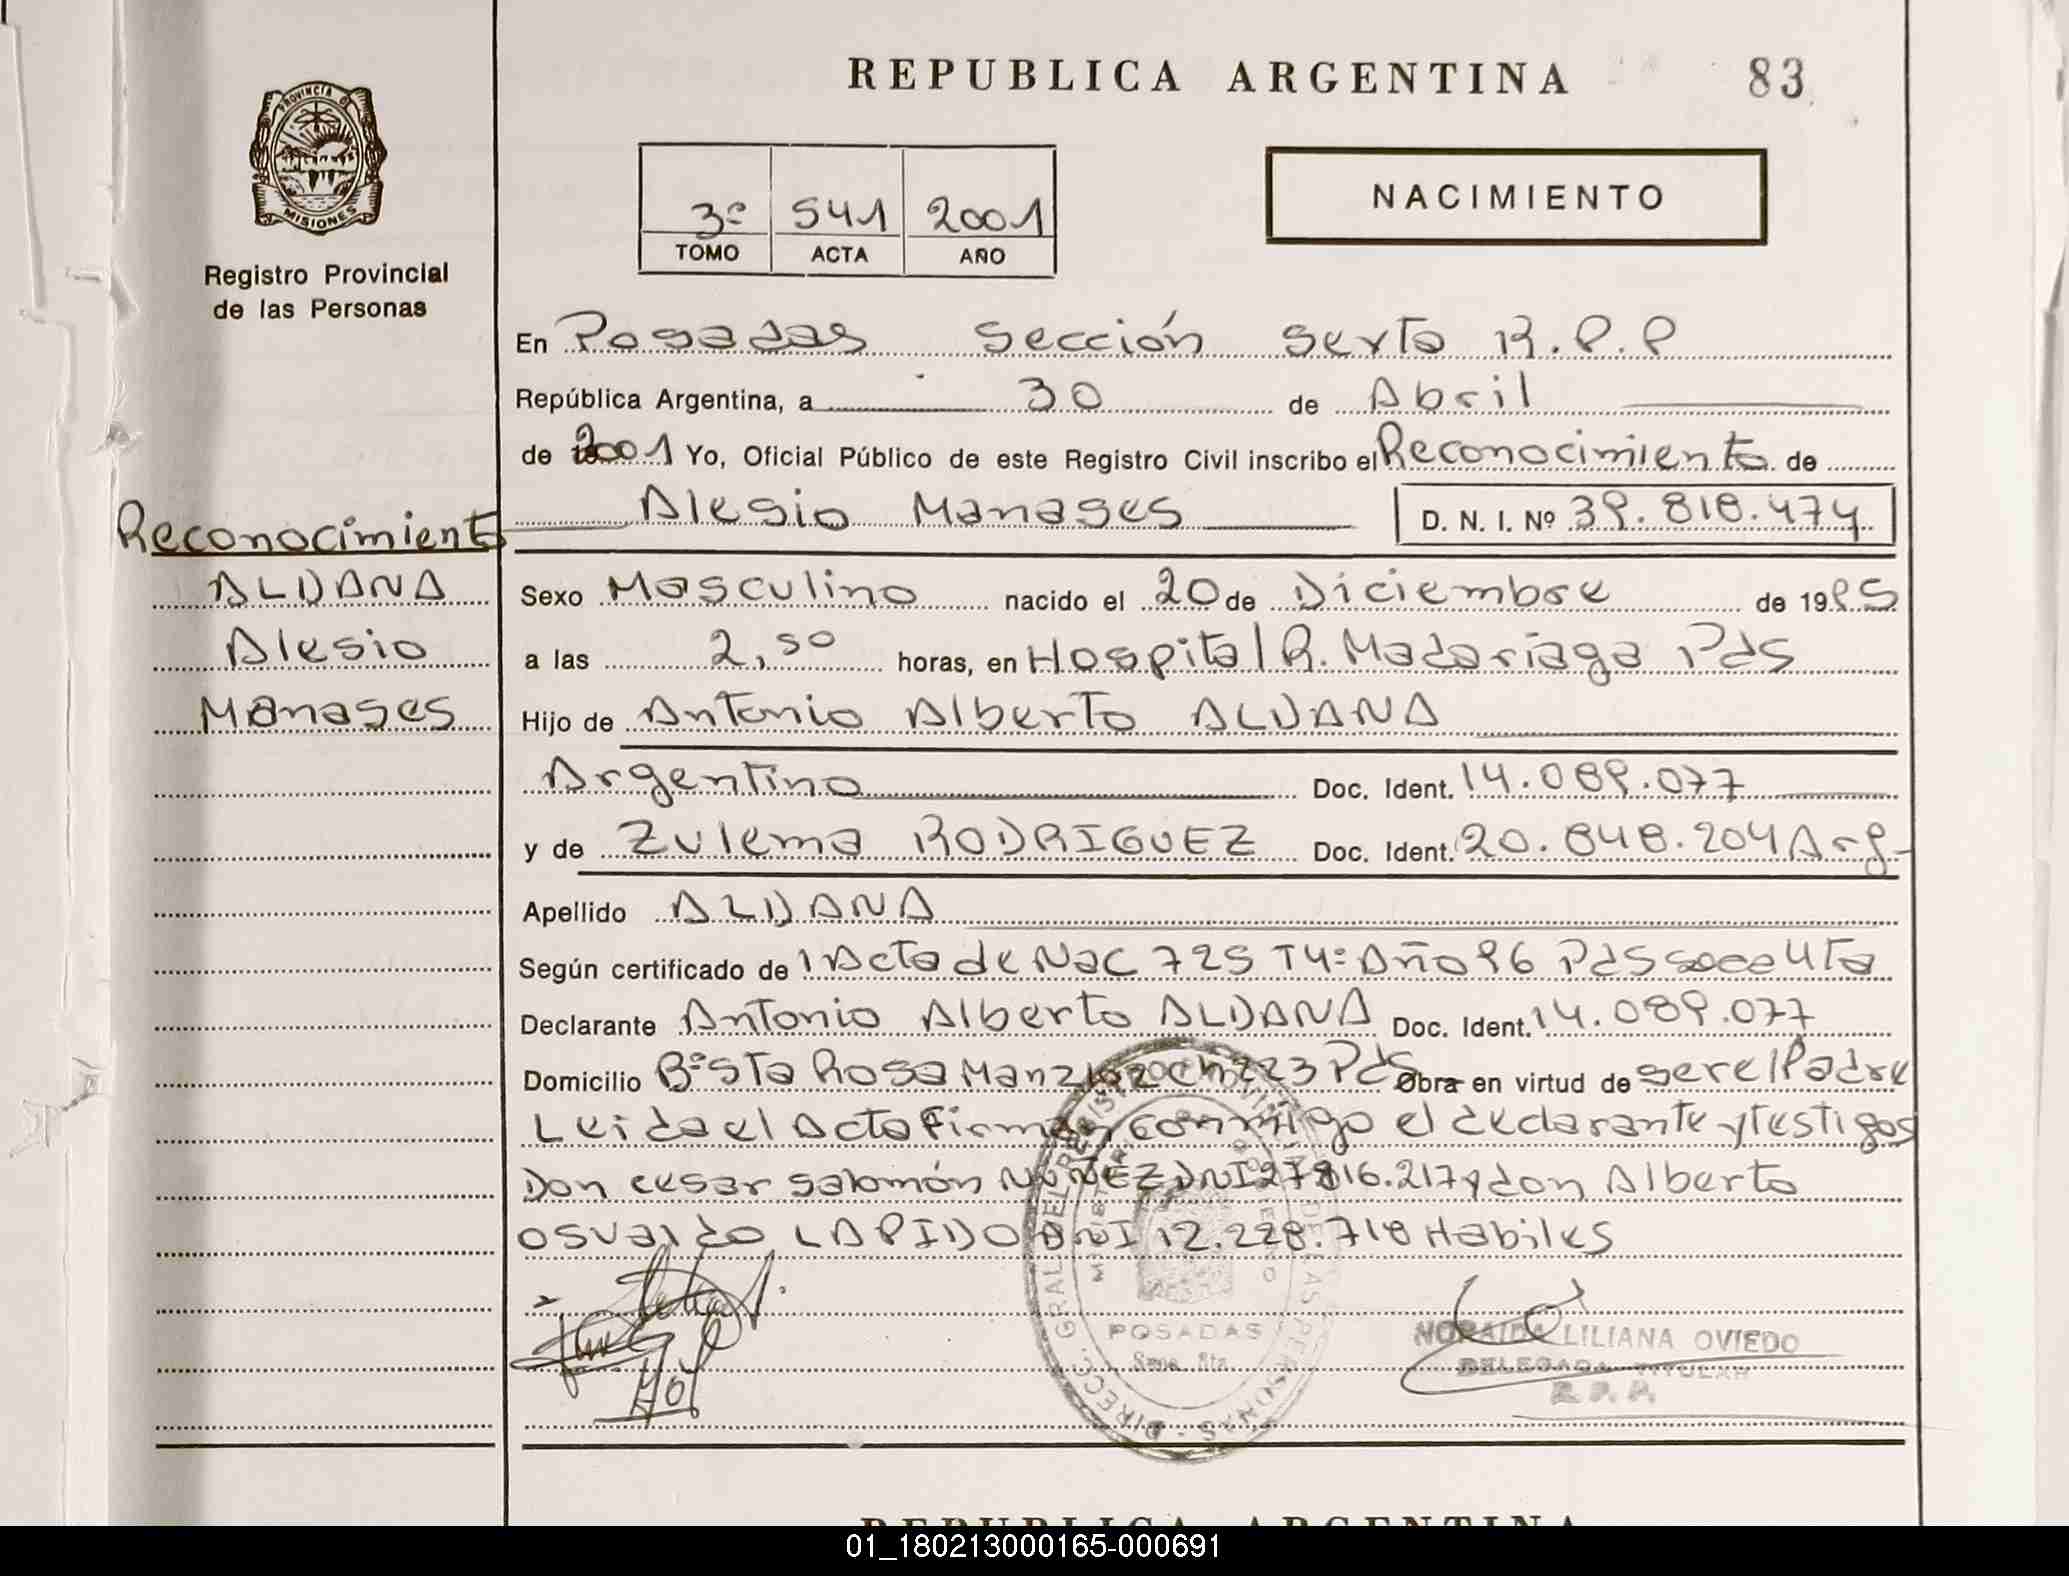 REPUBLICA ARGENTINA
83
PROVINCIA DE
MISIONES
Registro Provincial
de las Personas
3º 541 2001
TOMO ACTA AÑO
NACIMIENTO
En Posadas Sección Sexta R.P.P
República Argentina, a 30 de Abril
de 2001 Yo, Oficial Público de este Registro Civil inscribo el Reconocimiento de
Alesio Manases D. N. I. Nº 39.818.474
Reconocimiento
ALDANA
Alesio
Manases
Sexo Masculino nacido el 20 de Diciembre de 1995
a las 2,50 horas, en Hospital R. Madariaga Pdas
Hijo de Antonio Alberto ALDANA
Argentino Doc. Ident. 14.089.077
y de Zulema RODRIGUEZ Doc. Ident. 20.848.204 Arg-
Apellido ALDANA
Según certificado de 1 Acta de Nac 725 T4º Año 96 Pdas 4ta
Declarante Antonio Alberto ALDANA Doc. Ident. 14.089.077
Domicilio Bº Sta Rosa Obra en virtud de ser el Padre
Leida el Acta firman conmigo el declarante y testigos
Don cesar salomón NUÑEZ DNI 27816.217 y don Alberto
Osvaldo LAPIDO DNI 12.228.718 Habiles
DIRECC. GRAL DEL REGISTRO PROVINCIAL DE LAS PERSONAS
POSADAS
NORAIDA LILIANA OVIEDO
DELEGADA TITULAR
R. P. P.
REPUBLICA ARGENTINA
01_180213000165-000691